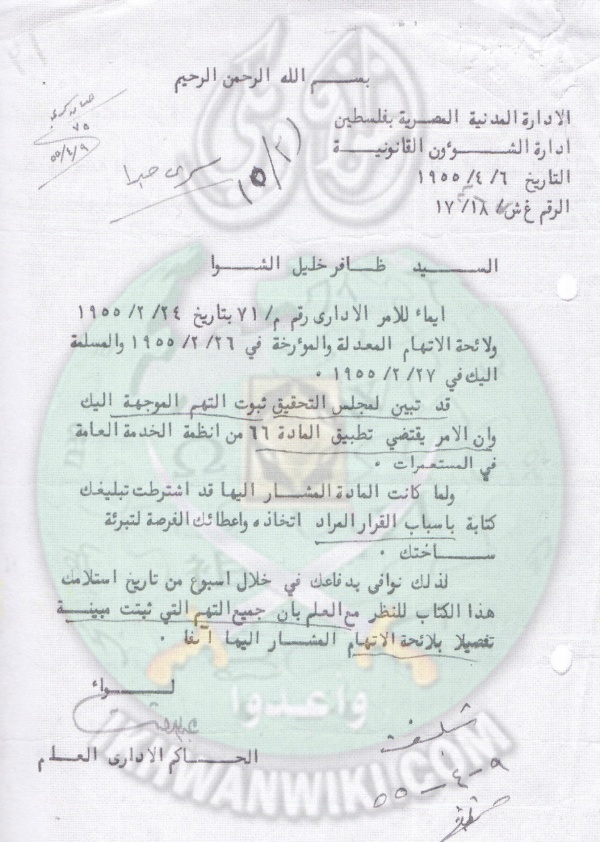 بسم الله الرحمن الرحيم
الادارة المدنية المصرية بفلسطين
ادارة الشوؤون القانونية
التاريخ ٦/ ٤/ ١٩٥٥
الرقم غ ش/ ١٧/١٨
٧٥
٥٥/٤/٩
سرى جدا
السيد ظافر خليل الشوا
ايماء للامر الادارى رقم م/ ٧١ بتاريخ ٢٤/ ٢/ ١٩٥٥
ولائحة الاتهام المعدلة والموءرخة في ٢٦/ ٢/ ١٩٥٥ والمسلمة
اليك في ٢٧/ ٢/ ١٩٥٥ ٠
قد تبين لمجلس التحقيق ثبوت التهم الموجهة اليك
وان الامر يقتضي تطبيق المادة ٦٦ من انظمة الخدمة العامة
في المستعمرات ٠
ولما كانت المادة المشار اليها قد اشترطت تبليغك
كتابة باسباب القرار المراد اتخاذه واعطائك الفرصة لتبرئة
ساحتك ٠
لذلك نوافى بدفاعك في خلال اسبوع من تاريخ استلامك
هذا الكتاب للنظر مع العلم بأن جميع التهم التي ثبتت مبينة
تفصيلا بلائحة الاتهام المشار اليها آنفا ٠
لواء
الحاكم الادارى العام
٩-٤-٥٥
وأعدوا
IKHWANWIKI.COM